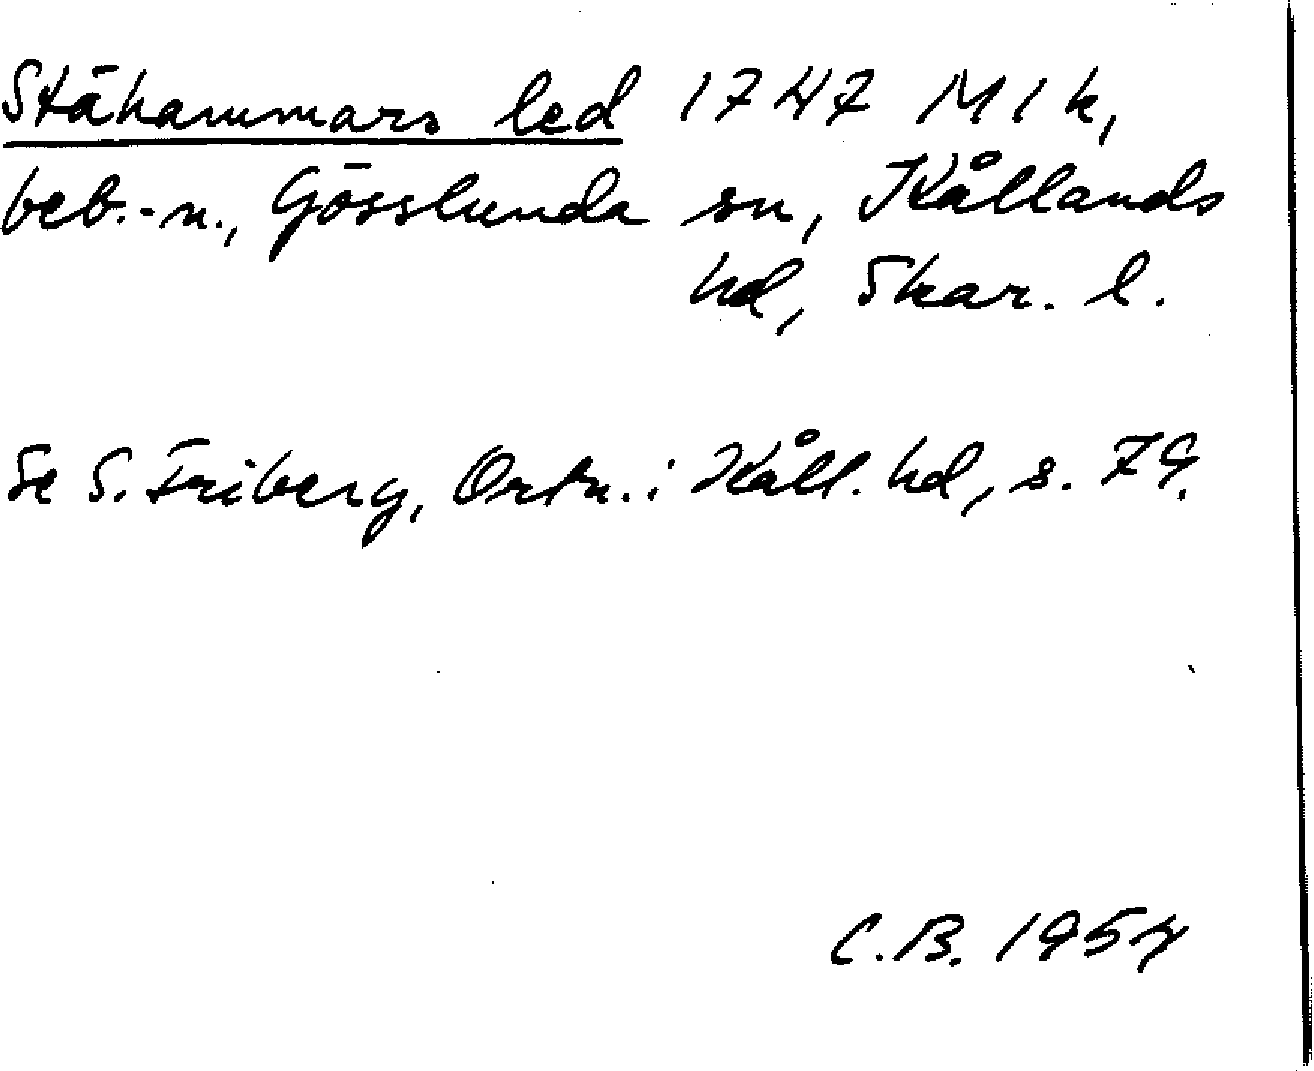 Stähammars led 1747 Mlk,
beb.-n., Gösslunda sn, Kållands
hd, Skar. l.
Se S. Friberg, Ortn. i Kåll. hd, s. 79.
C.B. 1954